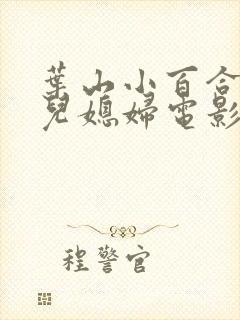 葉山小百合
兒媳婦電影
程警官